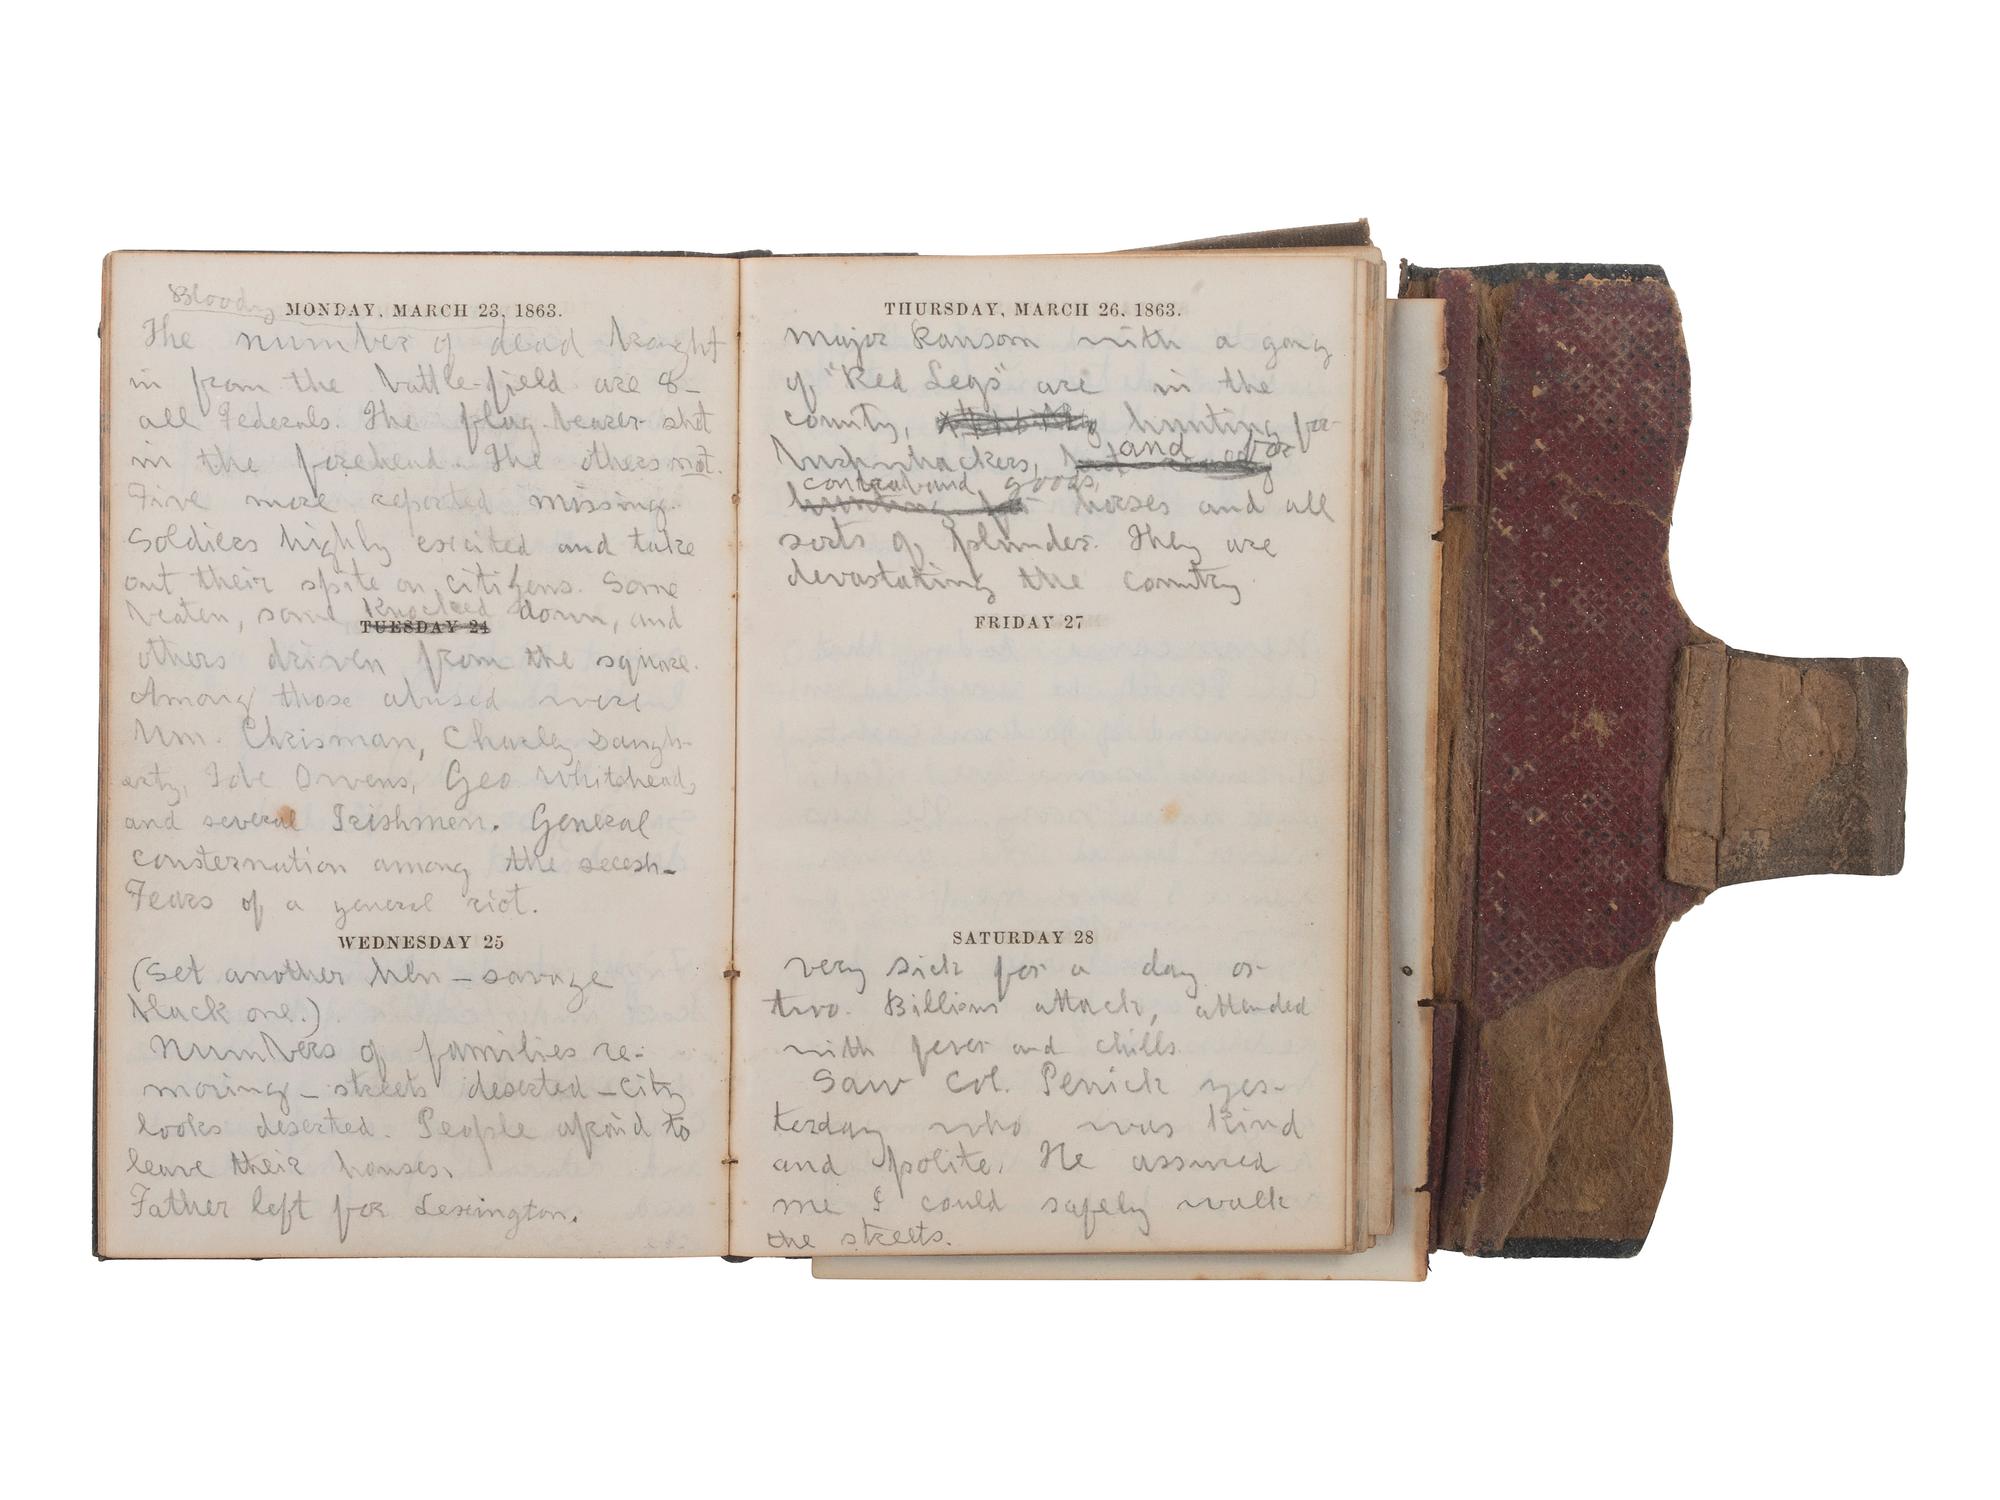 Bloody
MONDAY, MARCH 23, 1863.
The number of dead braught
in from the battle-field are 8_
all Federals. The flag-bearer shot
in the forehead. The others not.
Five more reported missing.
Soldiers highly excited and take
out their spite on citizens. Some
beaten, some knocked down, and
TUESDAY 24
others driven from the square.
Among those abused were
Wm. Chrisman, Charley Daugh-
erty, Ide Owens, Geo Whitehead,
and several Irishmen. General
consternation among the secesh_
Fears of a general riot.
WEDNESDAY 25
(Set another hen – savage
black one.)
Numbers of families re-
moving – streets deserted – city
looks deserted. People afraid to
leave their houses.
Father left for Lexington.
THURSDAY, MARCH 26, 1863.
Major Ransom with a gang
of "Red Legs" are in the
county, hunting for
and for
bushwhackers,
contraband goods,
hunting for horses and all
sorts of plunder. They are
devastating the country
FRIDAY 27
SATURDAY 28
Very sick for a day or
two. Billious attack, attended
with fever and chills.
Saw Col. Penick yes-
terday who was kind
and polite. He assured
me I could safely walk
the streets.